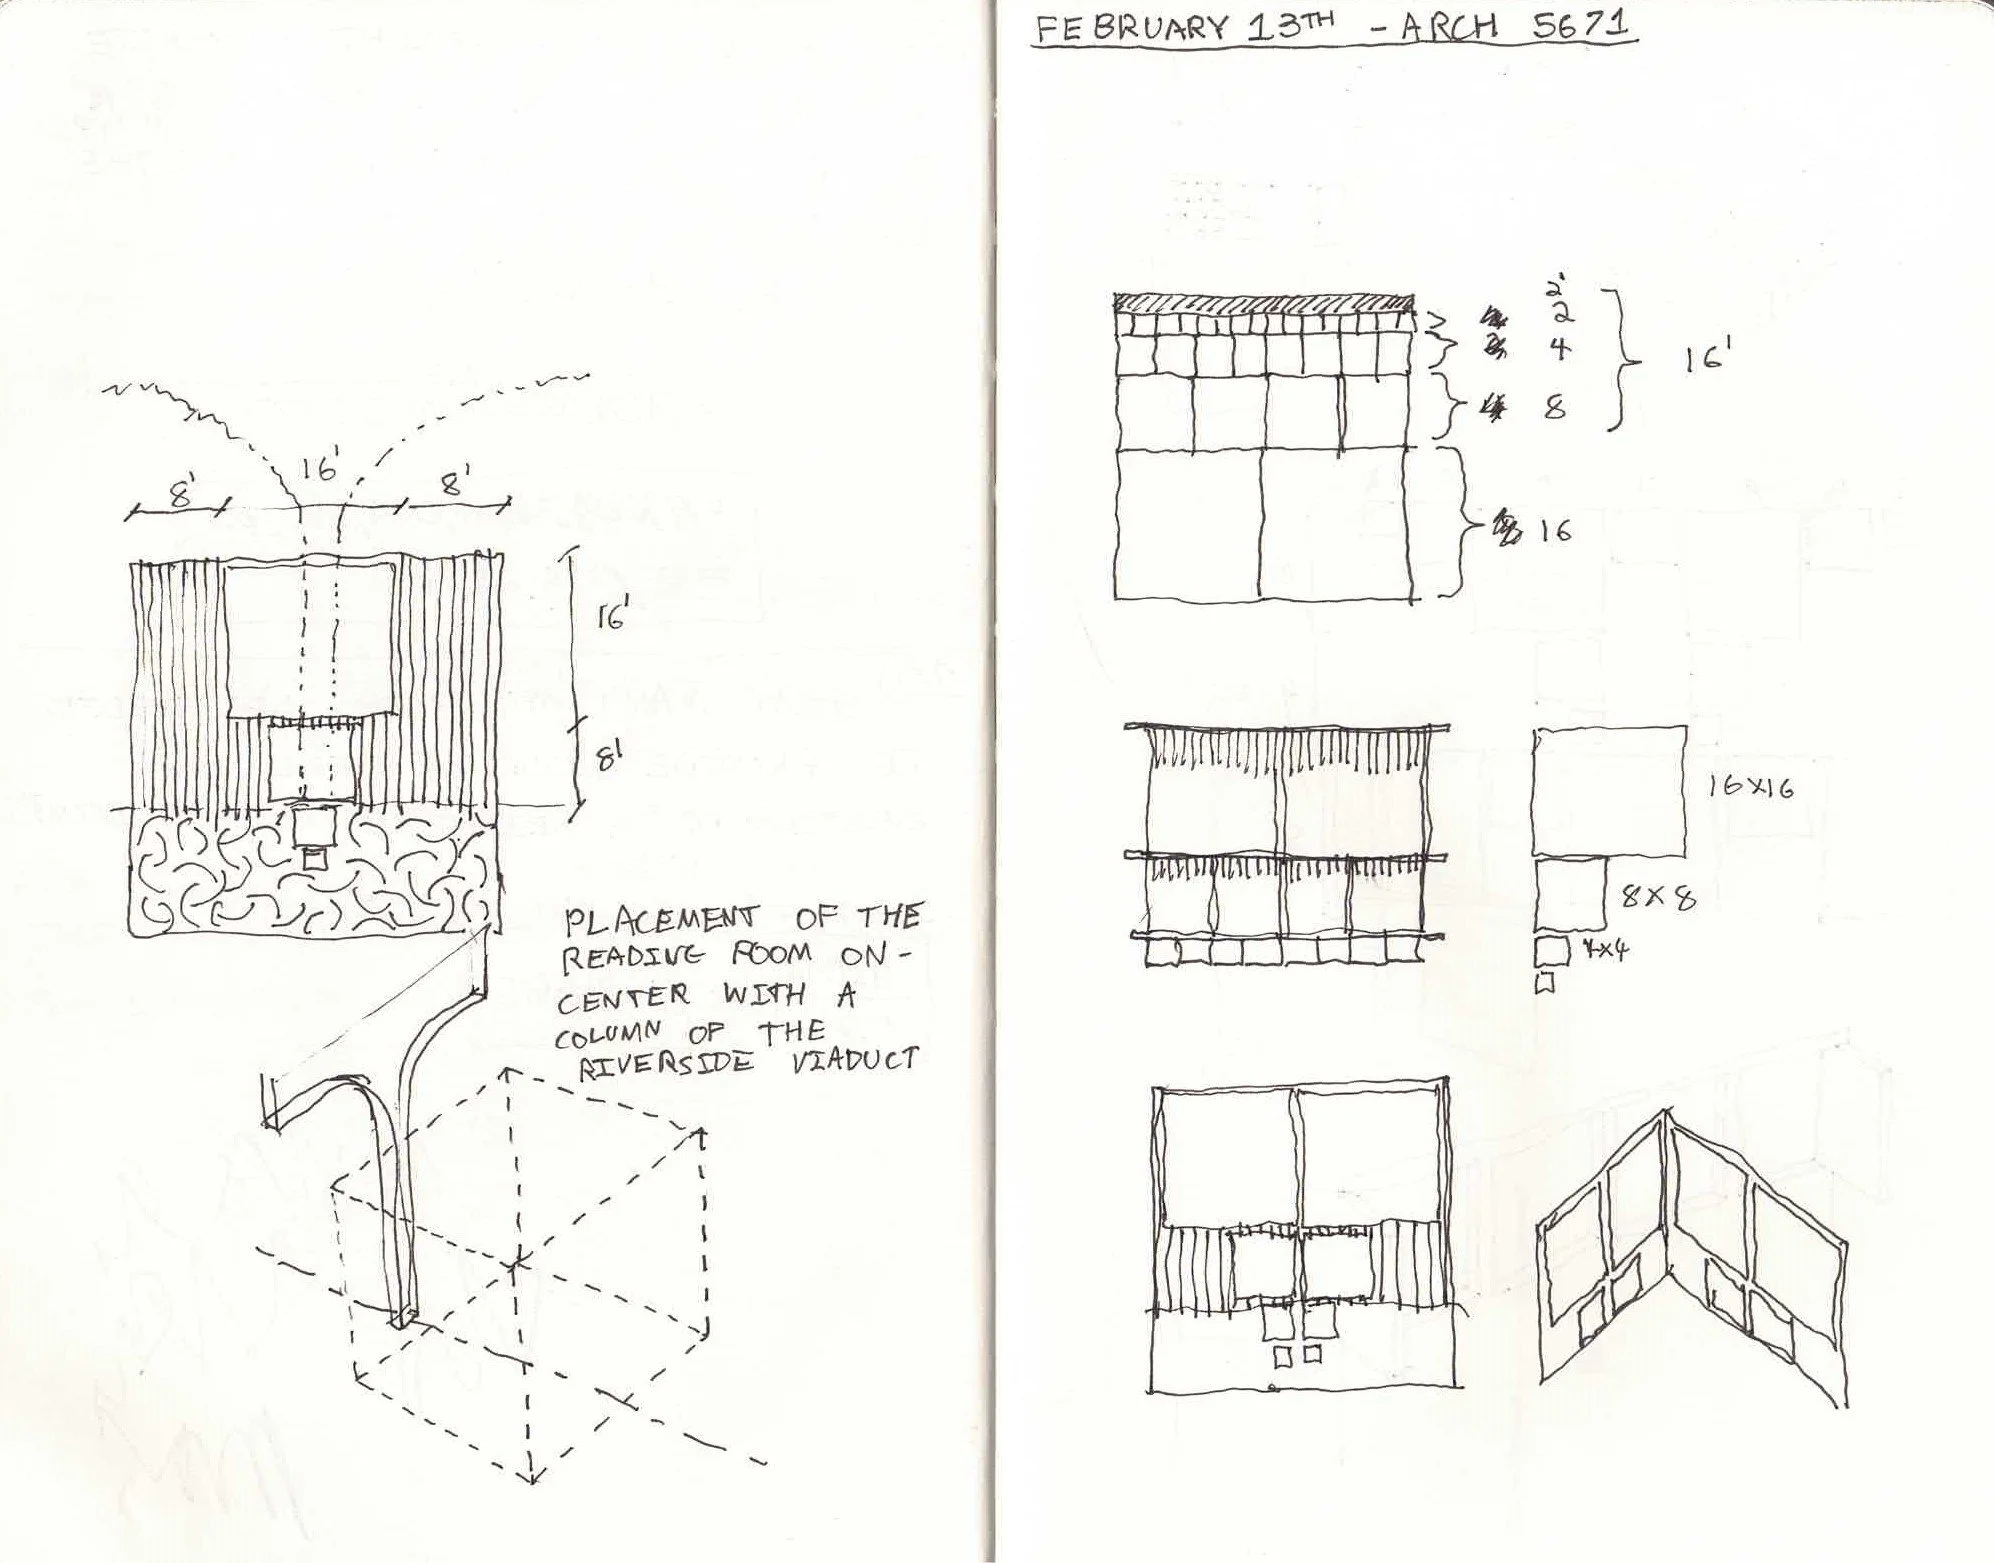 8'
16'
8'
16'
8'
PLACEMENT OF THE
READING ROOM ON-
CENTER WITH A
COLUMN OF THE
RIVERSIDE VIADUCT
FEBRUARY 13TH - ARCH 5671
2'
2
4
8
16'
16
16X16
8X8
4x4